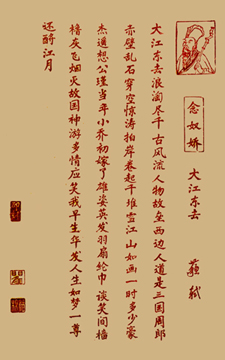 念奴娇
大江东去
蘇軾
大江东去浪淘尽千古风流人物故垒西边人道是三国周郎
赤壁乱石穿空惊涛拍岸卷起千堆雪江山如画一时多少豪
杰遥想公瑾当年小乔初嫁了雄姿英发羽扇纶巾谈笑间樯
橹灰飞烟灭故国神游多情应笑我早生华发人生如梦一尊
还酹江月